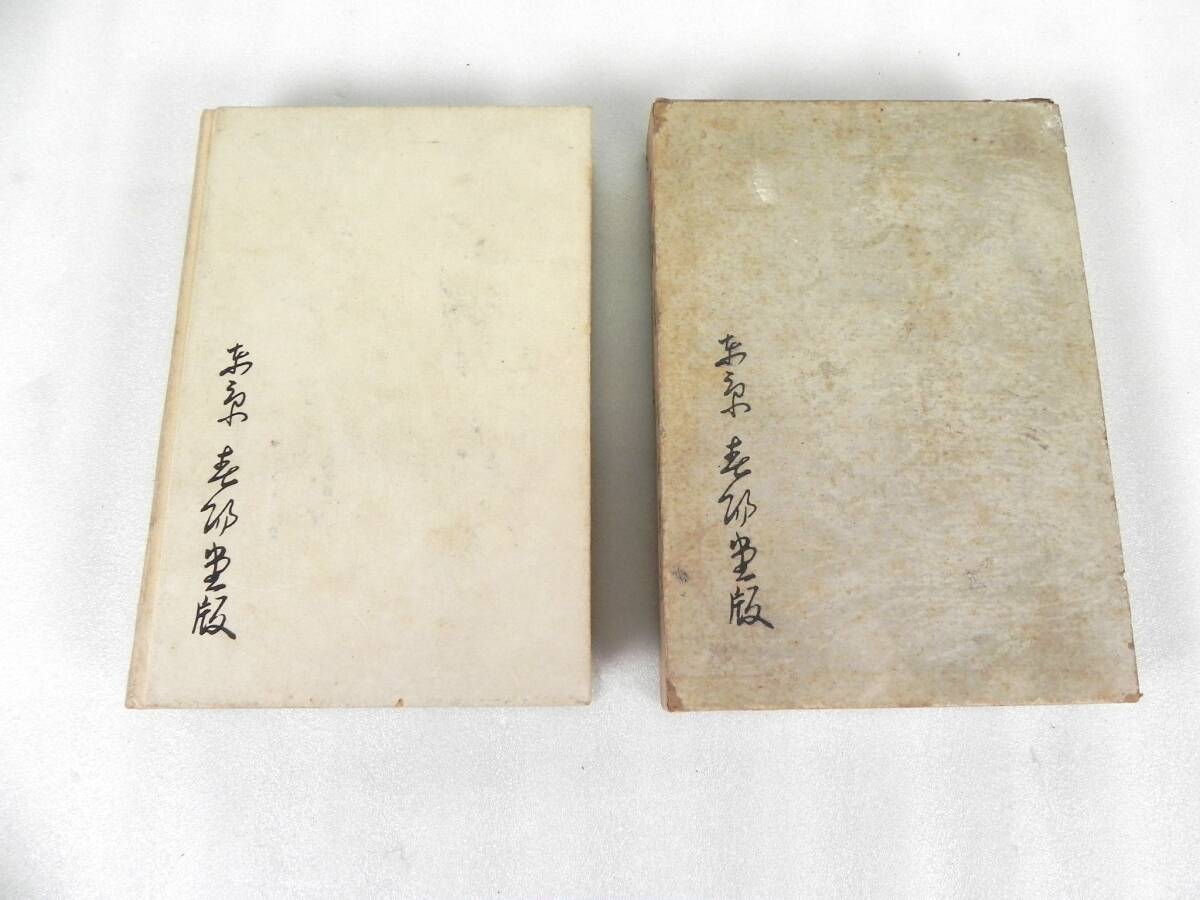 東京 春陽堂版
東京 春陽堂版